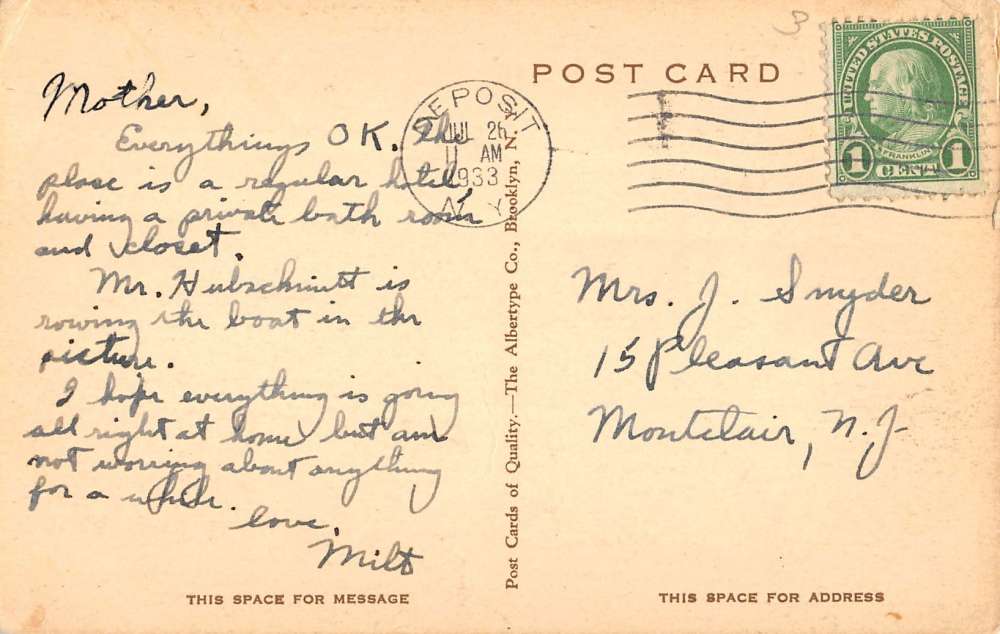 POST CARD
3
UNITED STATES POSTAGE
FRANKLIN
1 CENT 1
DEPOSIT
JUL 26
11 AM
1933
N. Y.
Mother,
Everythings OK. The
place is a regular hotel,
having a private bath room
and closet.
Mr. Hubschmitt is
rowing the boat in the
picture.
I hope everything is going
all right at home but am
not worring about anything
for a while.
love,
Milt
Post Cards of Quality.—The Albertype Co., Brooklyn, N. Y.
Mrs. J. Snyder
15 Pleasant Ave
Montclair, N.J.
THIS SPACE FOR MESSAGE
THIS SPACE FOR ADDRESS